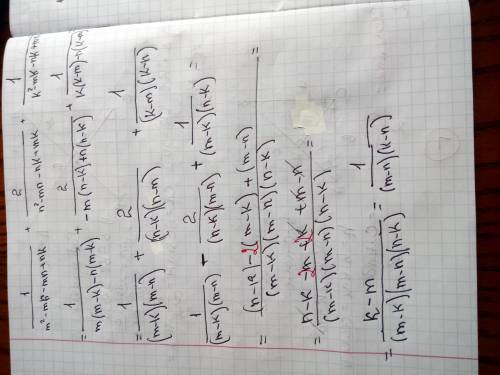 1/(m²-mk-mn+nk) + 2/(n²-mn-nk+mk) + 1/(k²-mk-nk+mn)
= 1/(m(m-k)-n(m-k)) + 2/(-m(n-k)+n(n-k)) + 1/(k(k-m)-n(k-
= 1/((m-k)(m-n)) + 2/((n-k)(n-m)) + 1/((k-m)(k-n))
1/((m-k)(m-n)) - 2/((n-k)(m-n)) + 1/((m-k)(n-k)) =
= ((n-k)-2(m-k)+(m-n))/((m-k)(m-n)(n-k)) =
= (n-k-2m+2k+m-n)/((m-k)(m-n)(n-k)) =
= (k-m)/((m-k)(m-n)(n-k)) = 1/((m-n)(k-n))